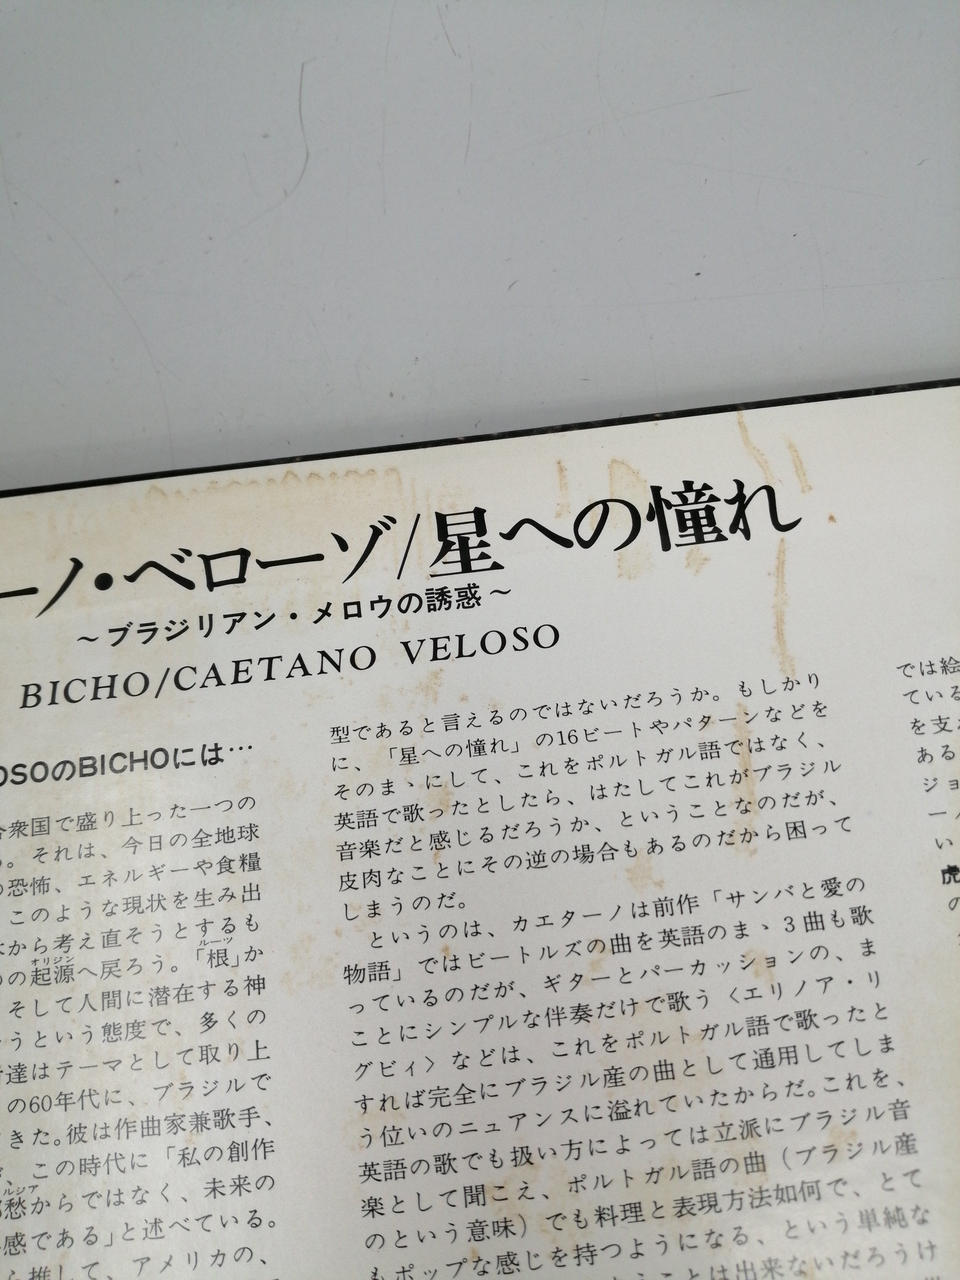 ーノ・ベローゾ/星への憧れ
~ブラジリアン・メロウの誘惑~
BICHO/CAETANO VELOSO
OSOのBICHOには…
合衆国で盛り上った一つの
。それは、今日の全地球
の恐怖、エネルギーや食糧
このような現状を生み出
から考え直そうとするも
の起源へ戻ろう。「根」か
オリジン
ルーツ
そして人間に潜在する神
うという態度で、多くの
達はテーマとして取り上
の60年代に、ブラジルで
きた。彼は作曲家兼歌手、
、この時代に「私の創作
ルジア
愁からではなく、未来の
感である」と述べている。
推して、アメリカの、
型であると言えるのではないだろうか。もしかり
に、「星への憧れ」の16ビートやパターンなどを
そのまゝにして、これをポルトガル語ではなく、
英語で歌ったとしたら、はたしてこれがブラジル
音楽だと感じるだろうか、ということなのだが、
皮肉なことにその逆の場合もあるのだから困って
しまうのだ。
というのは、カエターノは前作「サンバと愛の
物語」ではビートルズの曲を英語のまゝ3曲も歌
っているのだが、ギターとパーカッションの、ま
ことにシンプルな伴奏だけで歌う〈エリノア・リ
グビィ〉などは、これをポルトガル語で歌ったと
すれば完全にブラジル産の曲として通用してしま
う位いのニュアンスに溢れていたからだ。これを、
英語の歌でも扱い方によっては立派にブラジル音
楽として聞こえ、ポルトガル語の曲(ブラジル産
のという意味)でも料理と表現方法如何で、とて
もポップな感じを持つようになる、という単純な
ことは出来ないだろうけ
では絵
ている
を支え
ある
ジョ
ー
い
虎
の